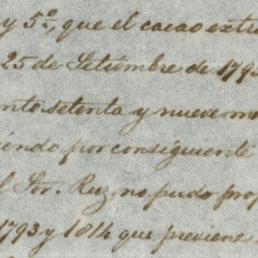 y 5º, que el cacao extra
25 de Setiembre de 1793
ento setenta y nueve mo
iendo por consiguiente
l Sor. Ruz no pudo prop
1793 y 1814 que previene